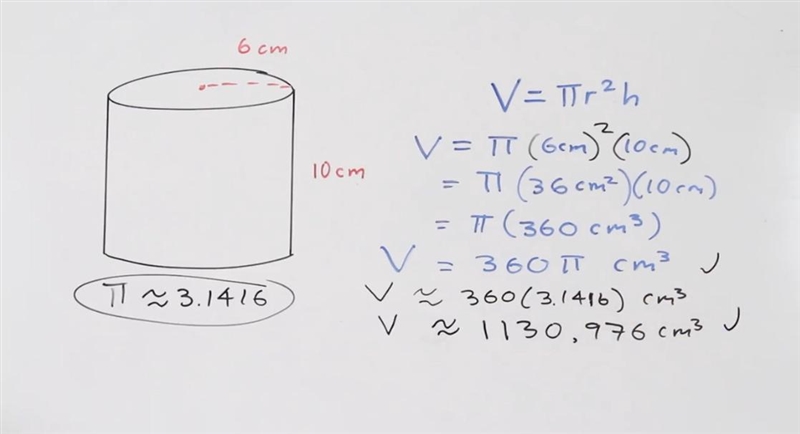 6 cm
10 cm
π ≈ 3.1416
V = πr²h
V = π (6cm)² (10cm)
= π (36 cm²)(10 cm)
= π (360 cm³)
V = 360 π cm³ ✓
V ≈ 360(3.1416) cm³
V ≈ 1130.976 cm³ ✓